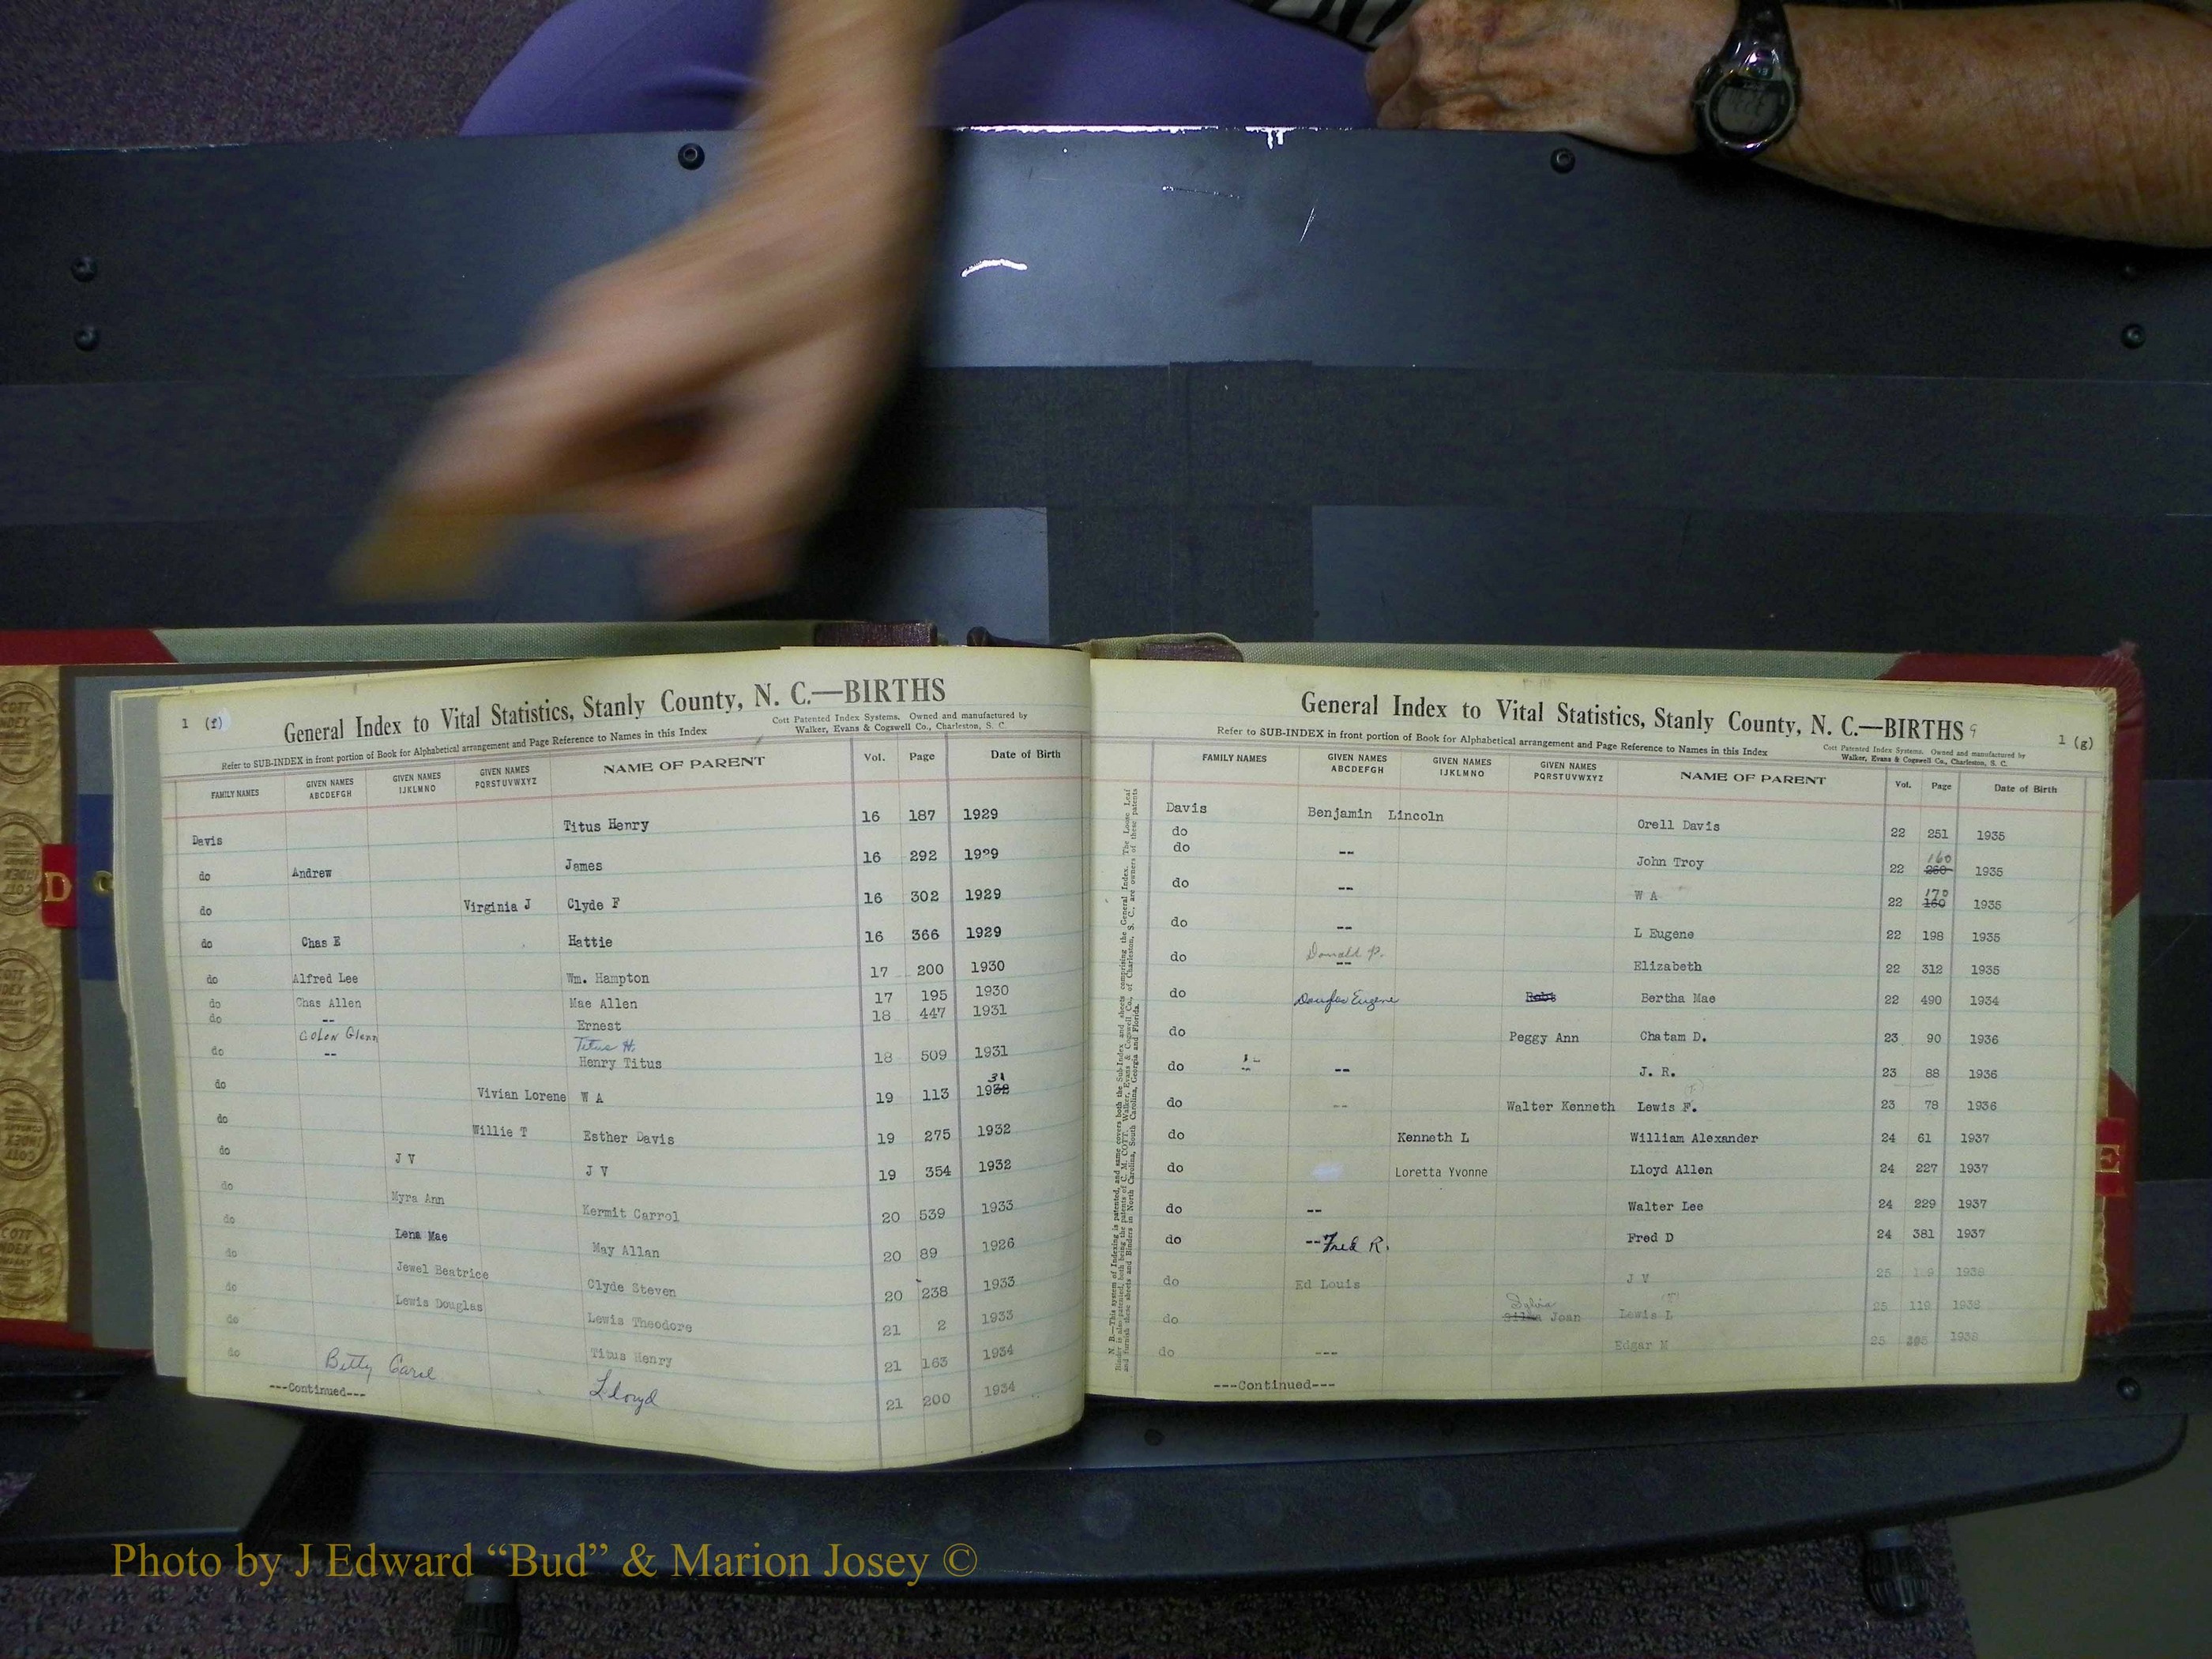 1 (f)
General Index to Vital Statistics, Stanly County, N. C.—BIRTHS
Refer to SUB-INDEX in front portion of Book for Alphabetical arrangement and Page Reference to Names in this Index
Cott Patented Index Systems. Owned and manufactured by
Walker, Evans & Cogswell Co., Charleston, S. C.
FAMILY NAMES GIVEN NAMES ABCDEFGH GIVEN NAMES IJKLMNO GIVEN NAMES PQRSTUVWXYZ NAME OF PARENT Vol. Page Date of Birth
Davis Titus Henry 16 187 1929
do Andrew James 16 292 1929
do Virginia J Clyde F 16 302 1929
do Chas E Hattie 16 366 1929
do Alfred Lee Wm. Hampton 17 200 1930
do Chas Allen Mae Allen 17 195 1930
do -- Ernest 18 447 1931
Colon Glenn Titus H.
do -- Henry Titus 18 509 1931
31
do Vivian Lorene W A 19 113 1932
do Willie T Esther Davis 19 275 1932
do J V J V 19 354 1932
do Myra Ann Kermit Carrol 20 539 1933
do Lena Mae May Allan 20 89 1926
do Jewel Beatrice Clyde Steven 20 238 1933
do Lewis Douglas Lewis Theodore 21 2 1933
do Titus Henry 21 163 1934
do Betty Carol Lloyd 21 200 1934
---Continued---
General Index to Vital Statistics, Stanly County, N. C.—BIRTHS 9
1 (g)
Refer to SUB-INDEX in front portion of Book for Alphabetical arrangement and Page Reference to Names in this Index
Cott Patented Index Systems. Owned and manufactured by
Walker, Evans & Cogswell Co., Charleston, S. C.
FAMILY NAMES GIVEN NAMES ABCDEFGH GIVEN NAMES IJKLMNO GIVEN NAMES PQRSTUVWXYZ NAME OF PARENT Vol. Page Date of Birth
Davis Benjamin Lincoln
do Orell Davis 22 251 1935
160
do -- John Troy 22 260 1935
170
do -- W A 22 160 1935
do -- L Eugene 22 198 1935
Donald P.
do -- Elizabeth 22 312 1935
do Douglas Eugene Bertha Mae 22 490 1934
do Peggy Ann Chatam D. 23 90 1936
do -- J. R. 23 88 1936
do -- Walter Kenneth Lewis F. 23 78 1936
do Kenneth L William Alexander 24 61 1937
do Loretta Yvonne Lloyd Allen 24 227 1937
do -- Walter Lee 24 229 1937
do --Fred R. Fred D 24 381 1937
do Ed Louis J V 25 1938
Sylvia
do Joan Lewis L 25 119 1938
do --- Edgar M 25 1938
---Continued---
N. B.—This system of Indexing is patented, and same covers both the Sub-Index and sheets comprising the General Index. The Loose Leaf
D
E
Photo by J Edward “Bud” & Marion Josey ©